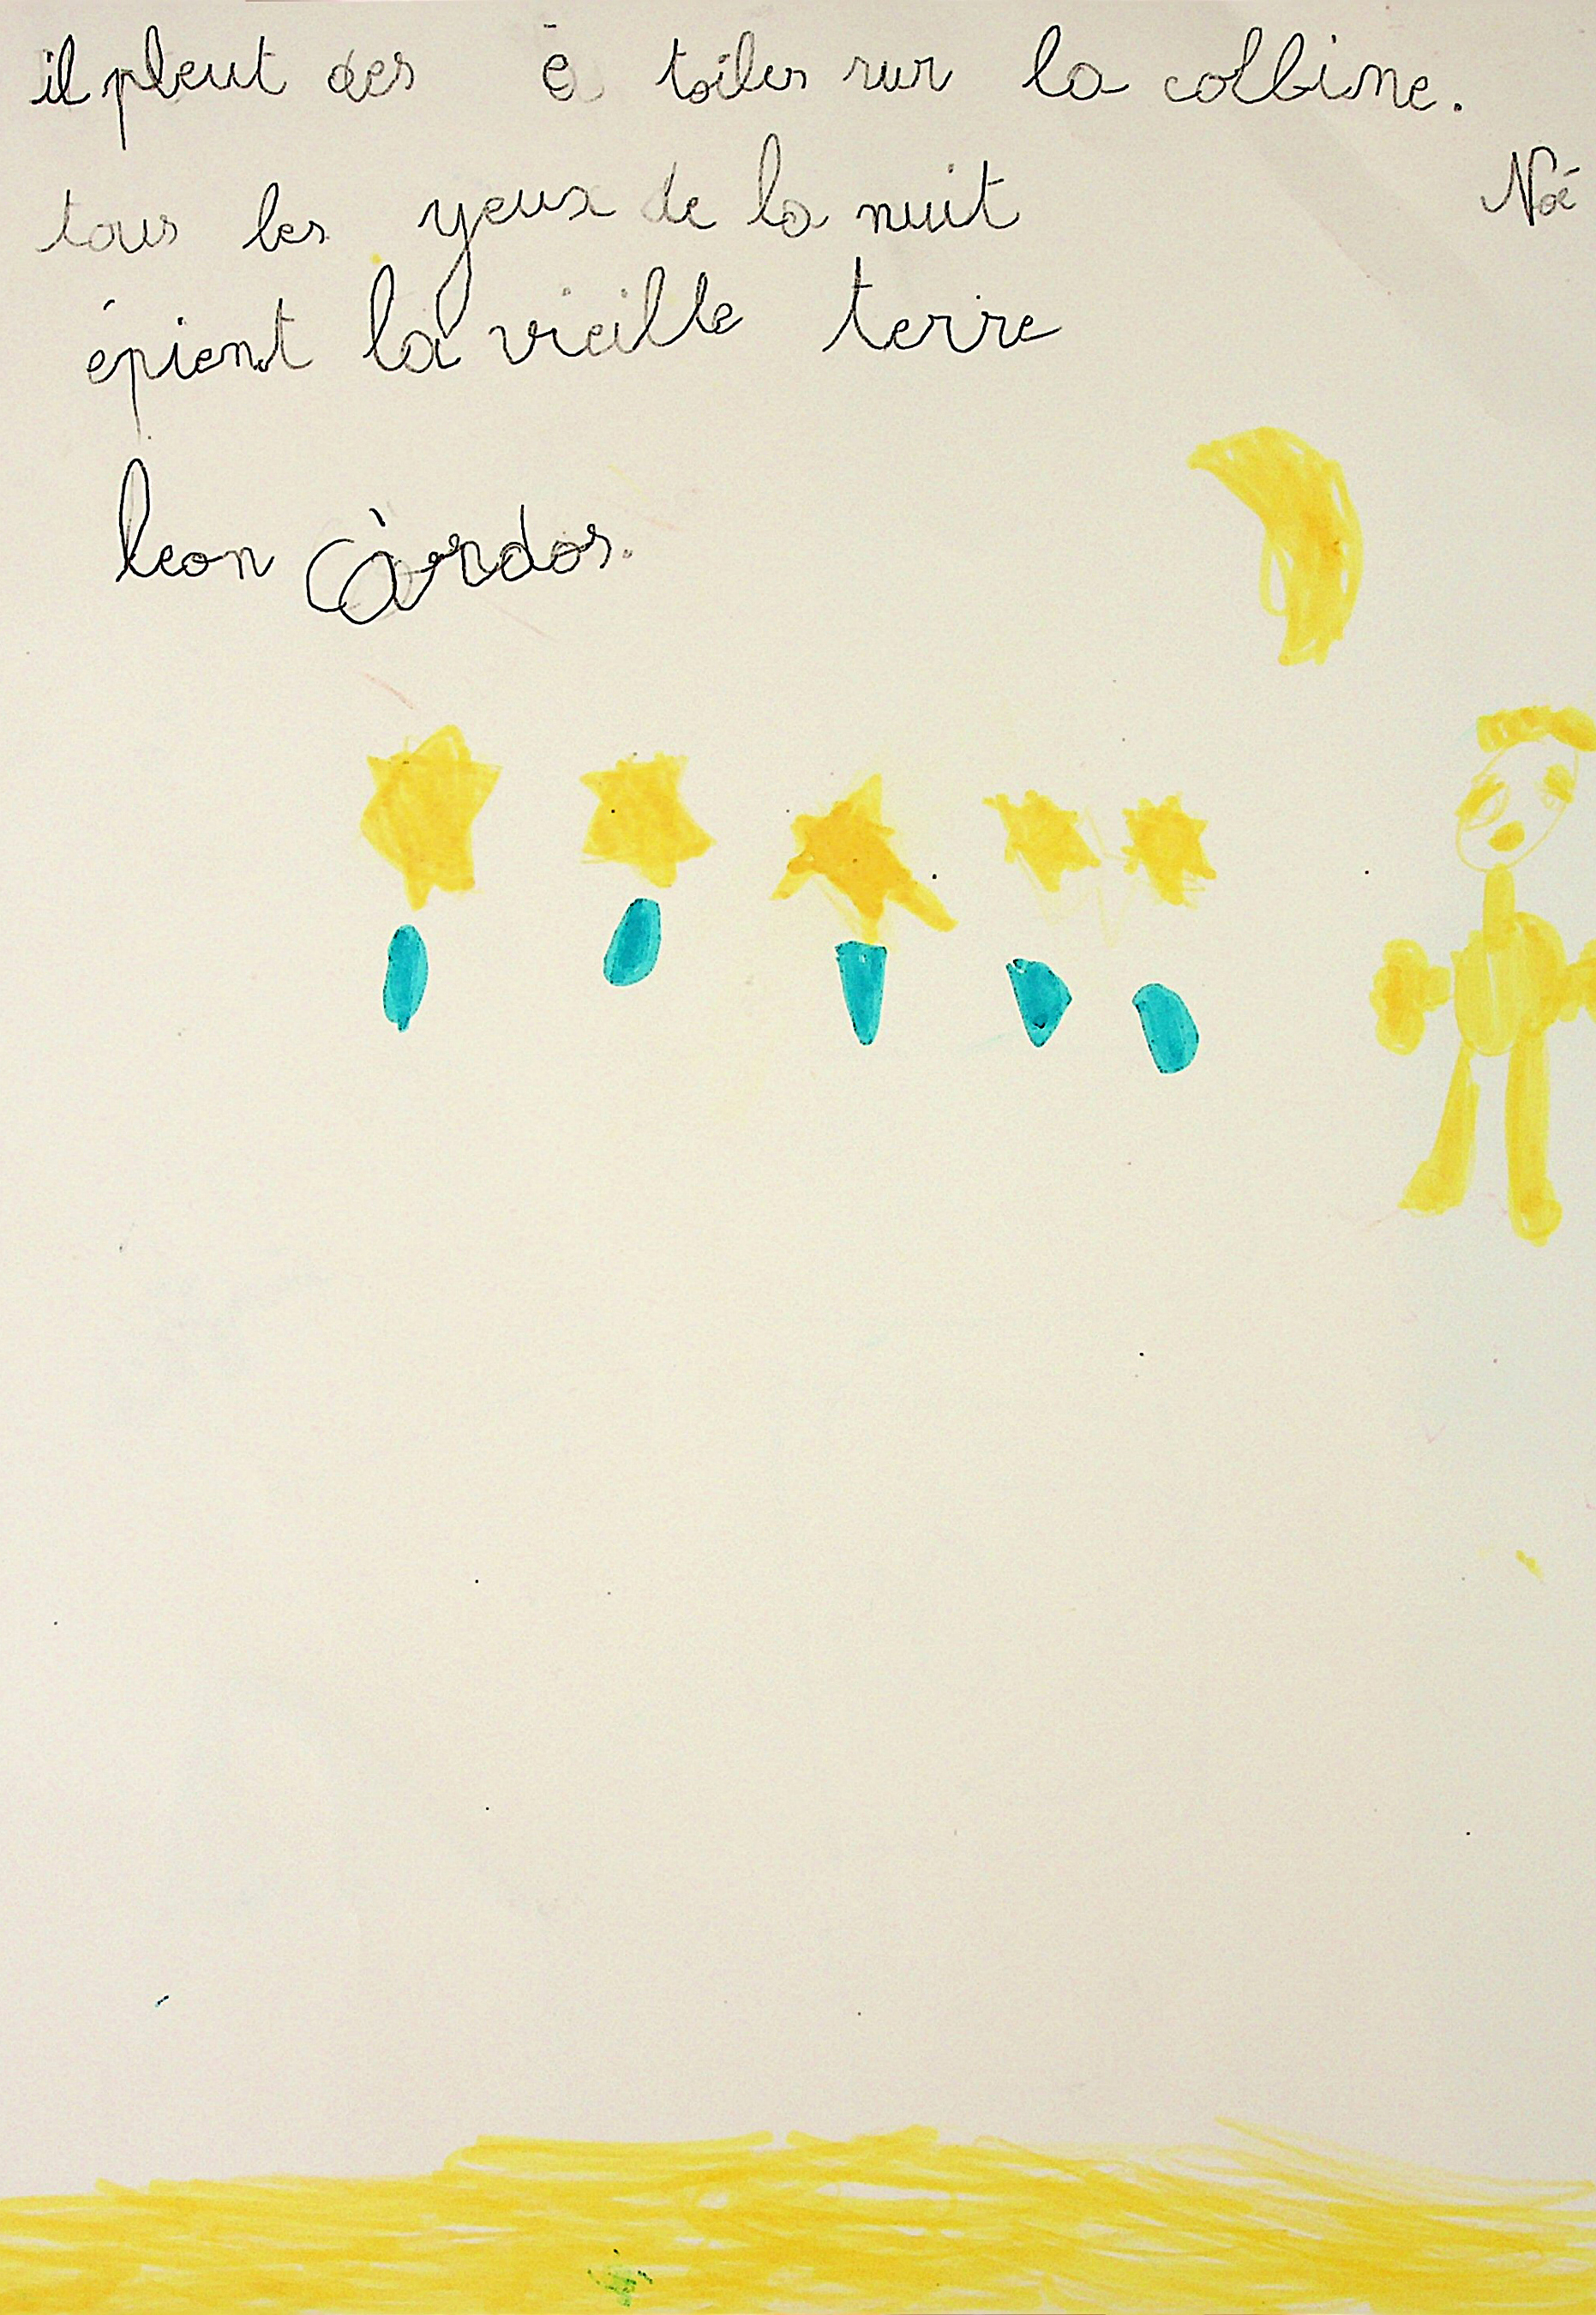 il pleut des é toiles sur la colline.
Noé
tous les yeux de la nuit
épient la vieille terre
leon Càrdos.